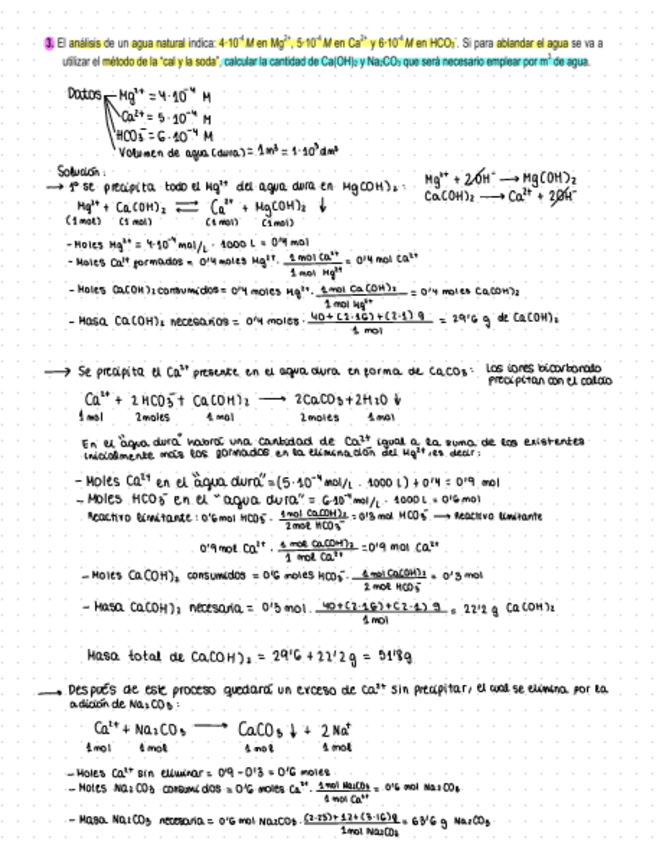 3. El análisis de un agua natural indica: 4·10⁻⁴ M en Mg²⁺, 5·10⁻⁴ M en Ca²⁺ y 6·10⁻⁴ M en HCO₃⁻. Si para ablandar el agua se va a
utilizar el método de la "cal y la soda", calcular la cantidad de Ca(OH)₂ y Na₂CO₃ que será necesario emplear por m³ de agua.
Datos Mg²⁺ = 4·10⁻⁴ M
Ca²⁺ = 5·10⁻⁴ M
HCO₃⁻ = 6·10⁻⁴ M
Volumen de agua (dura) = 1m³ = 1·10³dm³
Solución:
→ 1º se precipita todo el Mg²⁺ del agua dura en Mg(OH)₂:
Mg²⁺ + 2OH⁻ → Mg(OH)₂
Ca(OH)₂ → Ca²⁺ + 2OH⁻
Mg²⁺ + Ca(OH)₂ ⇄ Ca²⁺ + Mg(OH)₂ ↓
(1mol) (1 mol) (1 mol) (1mol)
- Moles Mg²⁺ = 4·10⁻⁴ mol/L · 1000 L = 0'4 mol
- Moles Ca²⁺ formados = 0'4 moles Mg²⁺ · 1 mol Ca²⁺ / 1 mol Mg²⁺ = 0'4 mol Ca²⁺
- Moles Ca(OH)₂ consumidos = 0'4 moles Mg²⁺ · 1 mol Ca(OH)₂ / 1 mol Mg²⁺ = 0'4 moles Ca(OH)₂
- Masa Ca(OH)₂ necesarios = 0'4 moles · 40+(2·16)+(2·1) g / 1 mol = 29'6 g de Ca(OH)₂
→ Se precipita el Ca²⁺ presente en el agua dura en forma de CaCO₃: Los iones bicarbonato
precipitan con el calcio
Ca²⁺ + 2HCO₃⁻ + Ca(OH)₂ → 2CaCO₃ + 2H₂O ↓
1mol 2moles 1mol 2moles 1mol
En el "agua dura" habrá una cantidad de Ca²⁺ igual a la suma de los existentes
inicialmente más los formados en la eliminación del Mg²⁺, es decir:
- Moles Ca²⁺ en el "agua dura" = (5·10⁻⁴ mol/L · 1000 L) + 0'4 = 0'9 mol
- Moles HCO₃⁻ en el "agua dura" = 6·10⁻⁴ mol/L · 1000 L = 0'6 mol
Reactivo limitante: 0'6 mol HCO₃⁻ · 1 mol Ca(OH)₂ / 2 mol HCO₃⁻ = 0'3 mol HCO₃⁻ → Reactivo limitante
0'9 mol Ca²⁺ · 1 mol Ca(OH)₂ / 1 mol Ca²⁺ = 0'9 mol Ca²⁺
- Moles Ca(OH)₂ consumidos = 0'6 moles HCO₃⁻ · 1 mol Ca(OH)₂ / 2 mol HCO₃⁻ = 0'3 mol
- Masa Ca(OH)₂ necesaria = 0'3 mol · 40+(2·16)+(2·1) g / 1 mol = 22'2 g Ca(OH)₂
Masa total de Ca(OH)₂ = 29'6 + 22'2 g = 51'8g
→ Después de este proceso quedará un exceso de Ca²⁺ sin precipitar, el cual se elimina por la
adición de Na₂CO₃:
Ca²⁺ + Na₂CO₃ → CaCO₃ ↓ + 2 Na⁺
1mol 1mol 1mol 1mol
- Moles Ca²⁺ sin eliminar = 0'9 - 0'3 = 0'6 moles
- Moles Na₂CO₃ consumidos = 0'6 moles Ca²⁺ · 1 mol Na₂CO₃ / 1 mol Ca²⁺ = 0'6 mol Na₂CO₃
- Masa Na₂CO₃ necesaria = 0'6 mol Na₂CO₃ · (2·23)+12+(3·16)g / 1mol Na₂CO₃ = 63'6 g Na₂CO₃